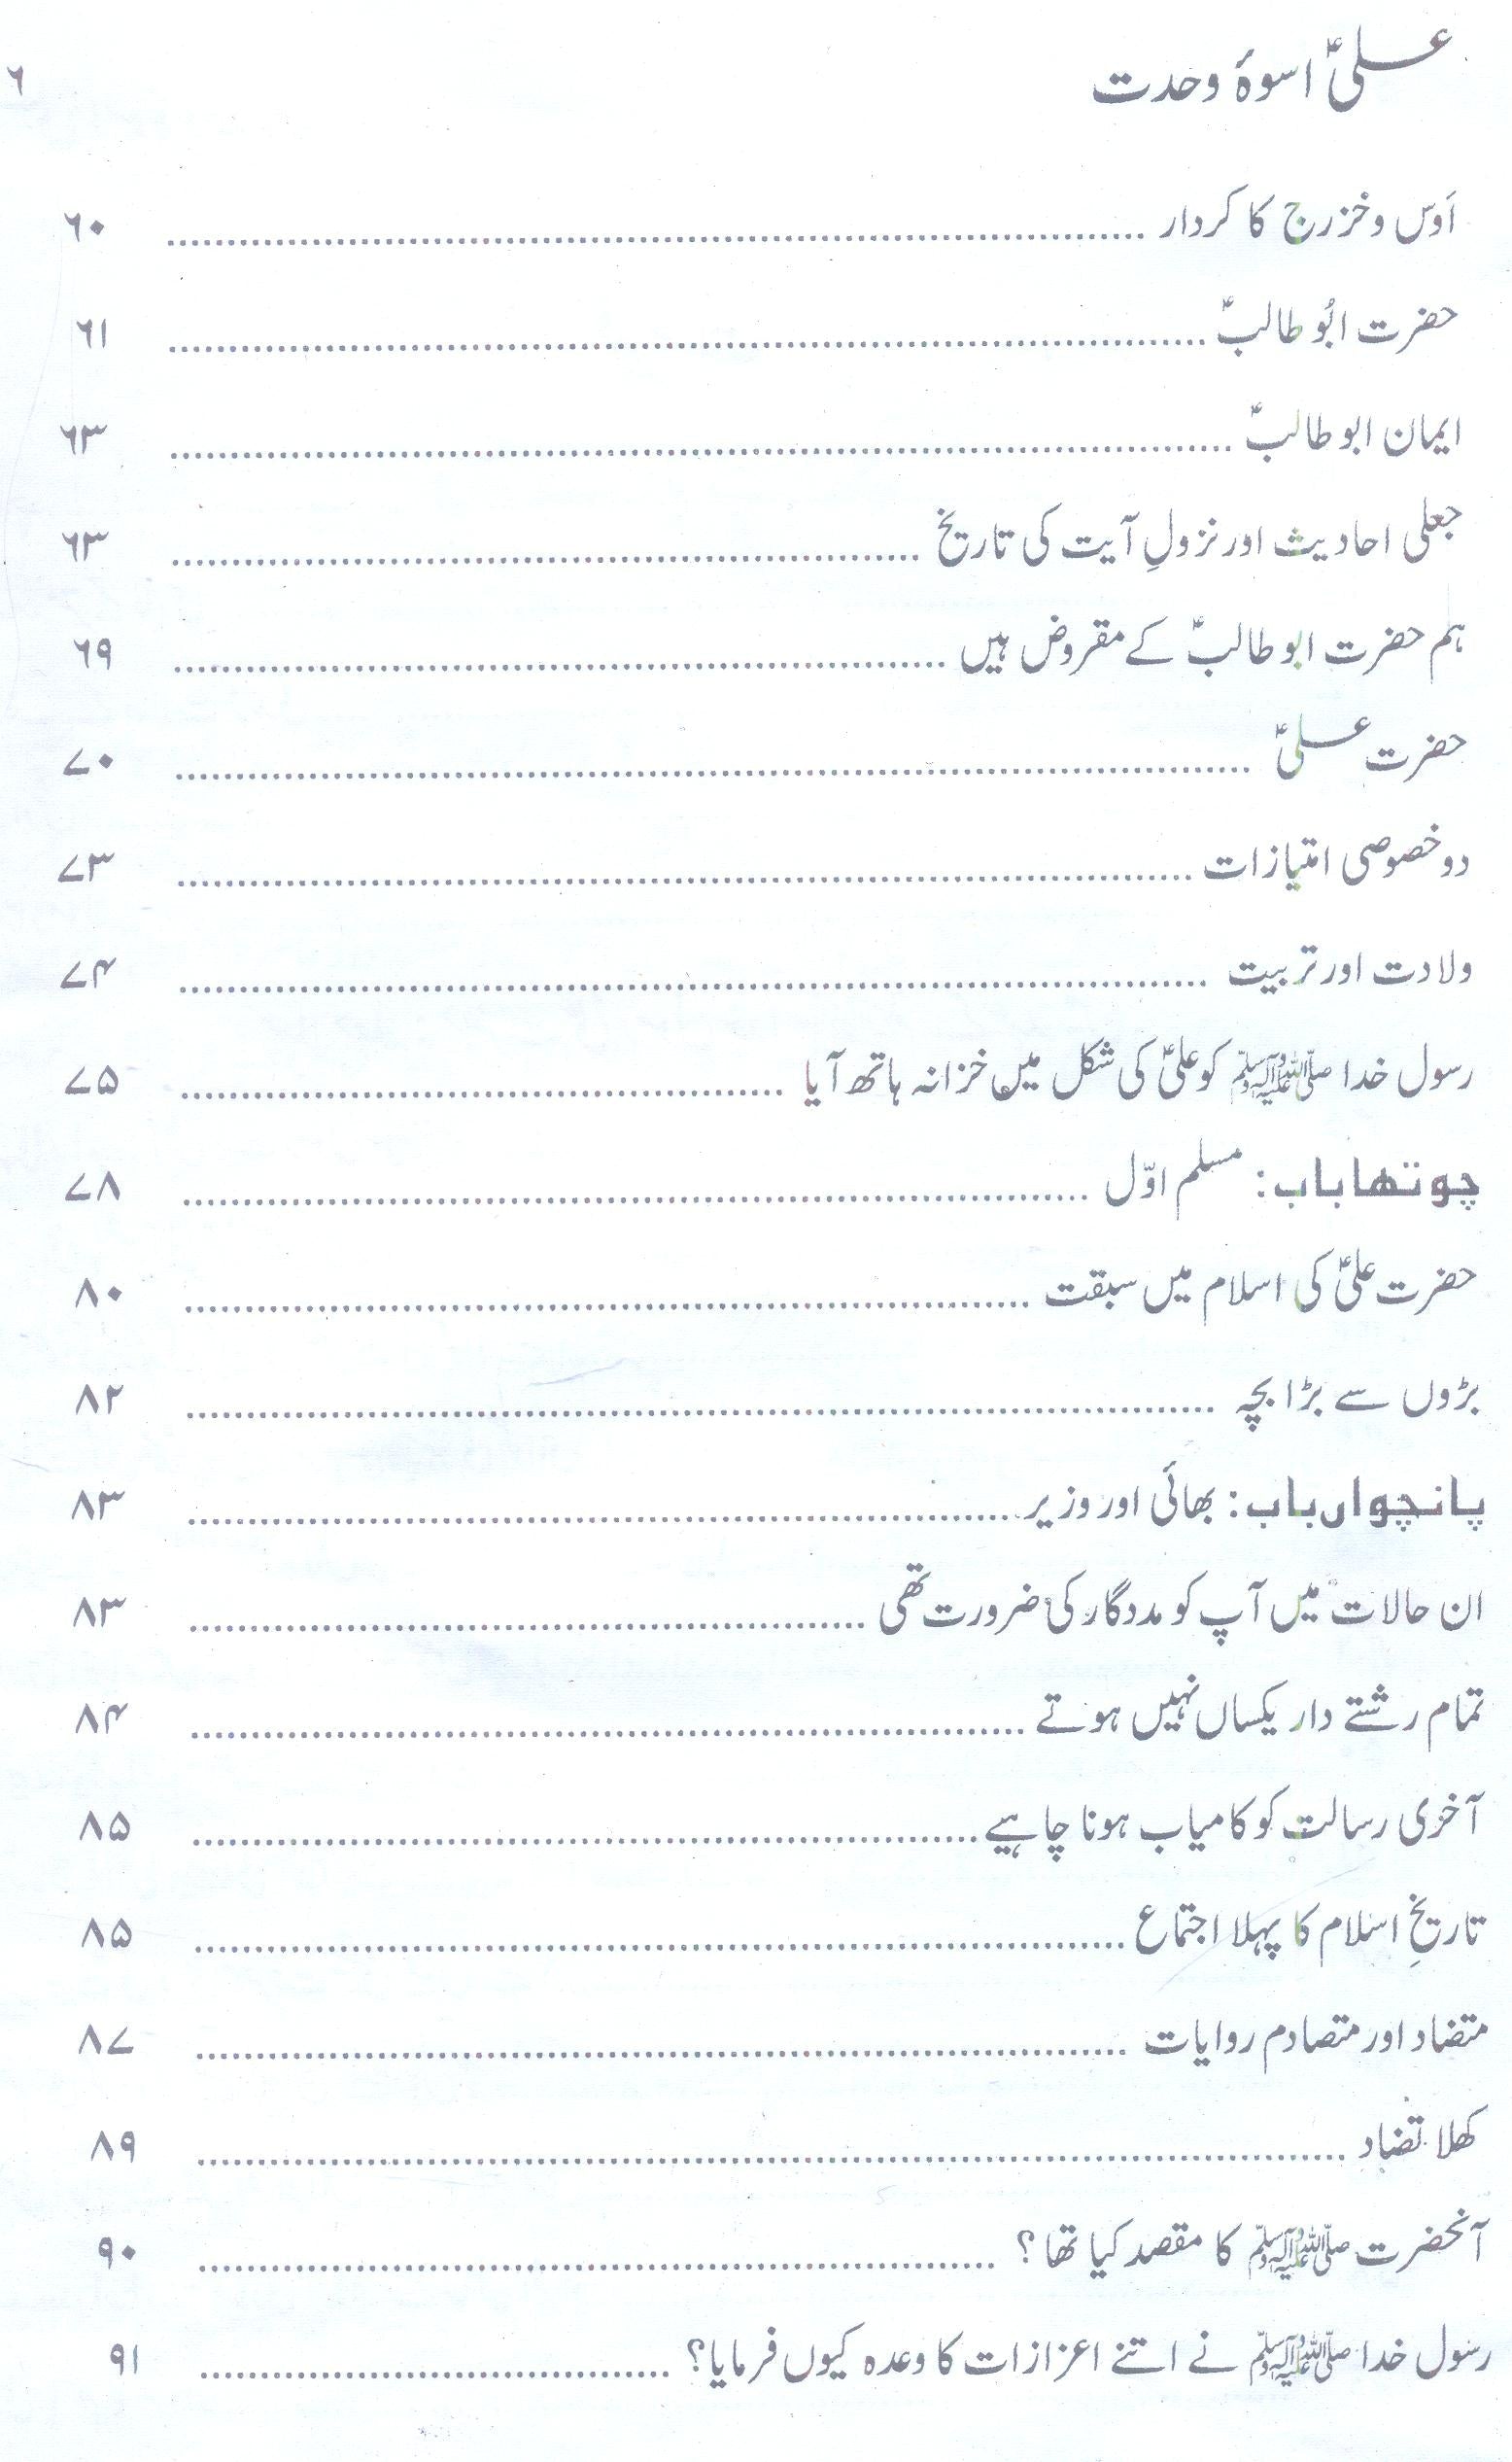 علیؑ اسوۂ وحدت ۶
اَوس و خزرج کا کردار ........ ۶۰
حضرت ابُو طالبؑ ........ ۶۱
ایمان ابو طالبؑ ........ ۶۳
جعلی احادیث اور نزولِ آیت کی تاریخ ........ ۶۳
ہم حضرت ابو طالبؑ کے مقروض ہیں ........ ۶۹
حضرت علیؑ ........ ۷۰
دو خصوصی امتیازات ........ ۷۳
ولادت اور تربیت ........ ۷۴
رسول خدا ﷺ کو علیؑ کی شکل میں خزانہ ہاتھ آیا ........ ۷۵
چوتھا باب: مسلم اوّل ........ ۷۸
حضرت علیؑ کی اسلام میں سبقت ........ ۸۰
بڑوں سے بڑا بچہ ........ ۸۲
پانچواں باب: بھائی اور وزیر ........ ۸۳
ان حالات میں آپ کو مددگار کی ضرورت تھی ........ ۸۳
تمام رشتے دار یکساں نہیں ہوتے ........ ۸۴
آخری رسالت کو کامیاب ہونا چاہیے ........ ۸۵
تاریخِ اسلام کا پہلا اجتماع ........ ۸۵
متضاد اور متصادم روایات ........ ۸۷
کھلا تضاد ........ ۸۹
آنحضرت ﷺ کا مقصد کیا تھا؟ ........ ۹۰
رسول خدا ﷺ نے اتنے اعزازات کا وعدہ کیوں فرمایا؟ ........ ۹۱